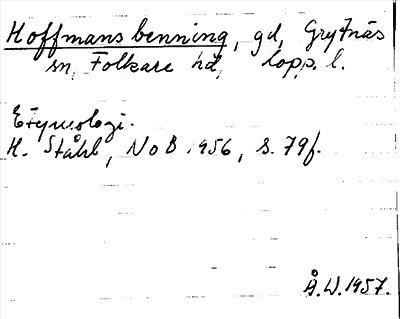 Hoffmans benning, gd, Grytnäs
sn, Folkare hd, Kopp. l.
Etymologi.
H. Ståhl, NoB 1956, s. 79f.
Å.W. 1957.